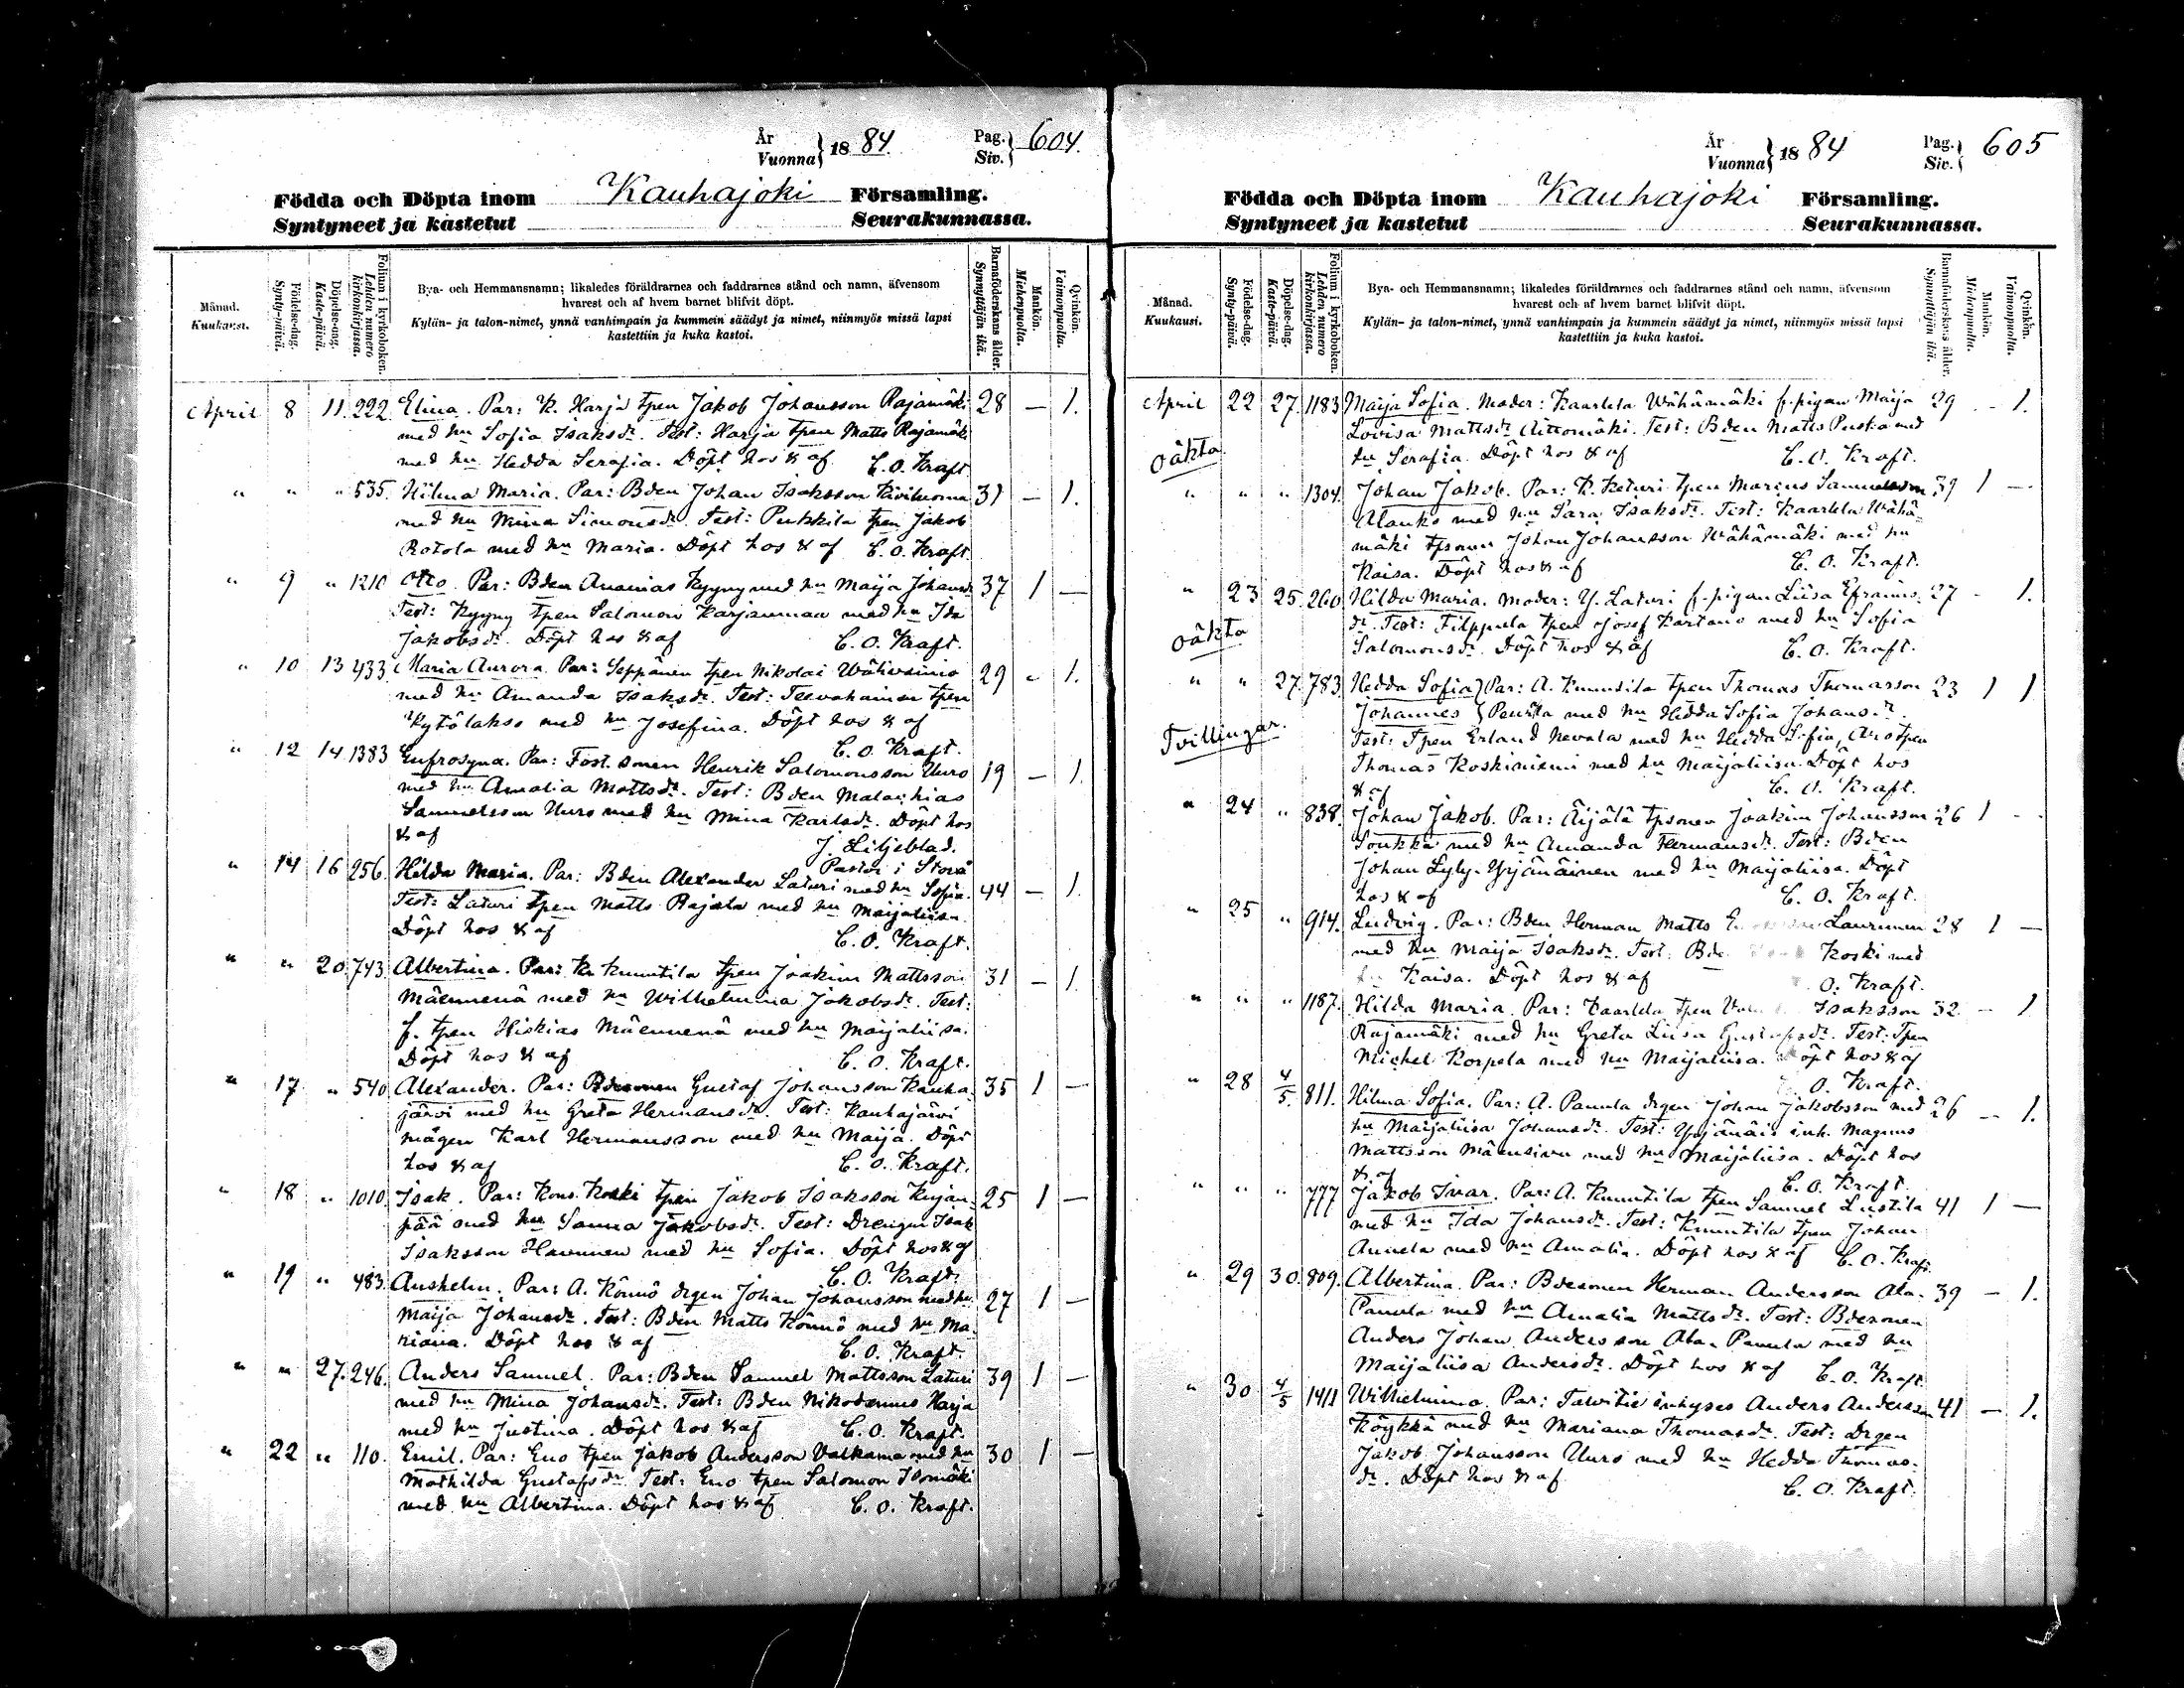 År
Vuonna } 1884. Pag. Siv. } 604.
Födda och Döpta inom Kauhajoki Församling.
Syntyneet ja kastetut Seurakunnassa.
Månad. Kuukausi.
Födelse-dag. Synty-päivä.
Döpelse-dag. Kaste-päivä.
Folium i kyrkoboken. Lehden numero kirkonkirjassa.
Bya- och Hemmansnamn; likaledes föräldrarnes och faddrarnes stånd och namn, äfvensom
hvarest och af hvem barnet blifvit döpt.
Kylän- ja talon-nimet, ynnä vanhimpain ja kummein säädyt ja nimet, niinmyös missä lapsi
kastettiin ja kuka kastoi.
Barnaföderskans ålder. Synnyttäjän ikä.
Mankön. Miehenpuolia.
Qvinkön. Vaimonpuolia.
April 8 11. 222. Elina. Par: K. Harja tpen Jakob Johansson Rajamäki 28 — 1.
med hu Sofia Isaksdr. Test: Harja tpen Matts Rajamäki
med hu Hedda Serafia. Döpt hos & af C. O. Kraft
" " " 535. Hilma Maria. Par: Bden Johan Isaksson Kiviluoma 31 — 1.
med hu Mina Simonsdr. Test: Pukkila tpen Jakob
Rotola med hu Maria. Döpt hos & af C. O. Kraft
" 9 " 1210 Otto. Par: Bden Ananias Kyyny med hu Maija Johansdr 37 1 —
Test: Kyyny tpen Salomon Karjanmaa med hu Ida
Jakobsdr. Döpt hos & af C. O. Kraft.
" 10 13 433 Maria Aurora. Par: Seppänen tpen Nikolai Wälivainio 29 - 1.
med hu Amanda Isaksdr. Test: Teevahainen tpen
Kytölakso med hu Josefina. Döpt hos & af
C. O. Kraft.
" 12 14 1383 Eufrosyna. Par: Fost. sonen Henrik Salomonsson Uuro 19 — 1.
med hu Amalia Mattsdr. Test: Bden Malachias
Samuelsson Uuro med hu Mina Karlsdr. Döpt hos
& af J. Liljeblad.
Pastor i Storå
" 14 16 256. Hilda Maria. Par: Bden Alexander Laturi med hu Sofia. 44 — 1.
Test: Laturi tpen Matts Rajala med hu Maijaliisa.
Döpt hos & af C. O. Kraft.
" " 20 743. Albertina. Par: K. Knuutila tpen Joakim Mattsson 31 — 1.
Mäenmenä med hu Wilhelmina Jakobsdr. Test:
f. tpen Hiskias Mäenmenä med hu Maijaliisa.
Döpt hos & af C. O. Kraft.
" 17 " 540 Alexander. Par: Bdesonen Gustaf Johansson Kauha- 35 1 —
järvi med hu Greta Hermansdr. Test: Kauhajärvi
mågen Karl Hermansson med hu Maija. Döpt
hos & af C. O. Kraft.
" 18 " 1010. Isak. Par: Kons. Koski tpen Jakob Isaksson Kirjan- 25 1 —
pää med hu Sanna Jakobsdr. Test: Drengen Isak
Isaksson Havunen med hu Sofia. Döpt hos & af
C. O. Kraft.
" 19 " 483. Anshelm. Par: A. Könnö drgen Johan Johansson med hu 27 1 —
Maija Johansdr. Test: Bden Matts Könnö med hu Ma-
riana. Döpt hos & af C. O. Kraft.
" " 27. 246. Anders Samuel. Par: Bden Samuel Mattsson Laturi 39 1 —
med hu Mina Johansdr. Test: Bden Nikodemus Harja
med hu Justina. Döpt hos & af C. O. Kraft.
" 22 " 110. Emil. Par: Eno tpen Jakob Andersson Valkama med hu 30 1 —
Mathilda Gustafsdr. Test: Eno tpen Salomon Isomäki
med hu Albertina. Döpt hos & af C. O. Kraft.
År
Vuonna } 1884 Pag. Siv. } 605
Födda och Döpta inom Kauhajoki Församling.
Syntyneet ja kastetut Seurakunnassa.
Månad. Kuukausi.
Födelse-dag. Synty-päivä.
Döpelse-dag. Kaste-päivä.
Folium i kyrkoboken. Lehden numero kirkonkirjassa.
Bya- och Hemmansnamn; likaledes föräldrarnes och faddrarnes stånd och namn, äfvensom
hvarest och af hvem barnet blifvit döpt.
Kylän- ja talon-nimet, ynnä vanhimpain ja kummein säädyt ja nimet, niinmyös missä lapsi
kastettiin ja kuka kastoi.
Barnaföderskans ålder. Synnyttäjän ikä.
Mankön. Miehenpuolia.
Qvinkön. Vaimonpuolia.
April 22 27. 1183 Maija Sofia. Moder: Kaarlela Wähämäki f. pigan Maija 29 - 1.
Lovisa Mattsdr Aittomäki. Test: Bden Matts Puska med
oäkta hu Serafia. Döpt hos & af C. O. Kraft.
" " " 1304. Johan Jakob. Par: K. Keturi tpen Marcus Samuelsson 39 1 —
Alanko med hu Sara Isaksdr. Test: Kaarlela Wähä-
mäki tpsonen Johan Johansson Wähämäki med hu
Kaisa. Döpt hos & af C. O. Kraft.
" 23 25. 260 Hilda Maria. Moder: Y. Laturi f. pigan Liisa Efraims- 27 - 1.
dr. Test: Filppula tpen Josef Kartano med hu Sofia
oäkta Salomonsdr. Döpt hos & af C. O. Kraft.
" " 27. 783. Hedda Sofia } Par: A. Knuutila tpen Thomas Thomasson 23 1 1
Johannes } Penttla med hu Hedda Sofia Johansdr.
Tvillingar. Test: Tpen Erland Nevala med hu Hedda Sofia, Aro tpen
Thomas Koskiniemi med hu Maijaliisa. Döpt hos
& af C. O. Kraft.
" 24 " 838. Johan Jakob. Par: Äijälä tpsonen Joakim Johansson 26 1 -
Soukka med hu Amanda Hermansdr. Test: Bden
Johan Lyly-Yrjänäinen med hu Maijaliisa. Döpt
hos & af C. O. Kraft.
" 25 " 914. Ludvig. Par: Bden Herman Matts Laurunen 28 1 —
med hu Maija Isaksdr. Test: Bde Koski med
hu Kaisa. Döpt hos & af O. Kraft.
" " " 1187. Hilda Maria. Par: Kaarlela tpen Isaksson 32 — 1
Rajamäki med hu Greta Liisa Gustafsdr. Test: Tpen
Michel Korpela med hu Maijaliisa. Döpt hos & af
O. Kraft.
" 28 4/5. 811. Hilma Sofia. Par: A. Panula drgen Johan Jakobsson med 26 — 1.
hu Maijaliisa Johansdr. Test: Yrjänäis inh. Magnus
Mattsson Mäensivu med hu Maijaliisa. Döpt hos
& af C. O. Kraft.
" " " 777 Jakob Ivar. Par: A. Knuutila tpen Samuel Lustila 41 1 —
med hu Ida Johansdr. Test: Knuutila tpen Johan
Annela med hu Amalia. Döpt hos & af C. O. Kraft.
" 29 30. 809. Albertina. Par: Bdesonen Herman Andersson Ala- 39 — 1.
Panula med hu Amalia Mattsdr. Test: Bdesonen
Anders Johan Andersson Ala-Panula med hu
Maijaliisa Andersdr. Döpt hos & af C. O. Kraft.
" 30 4/5 1411 Wilhelmina. Par: Tawitie inhyses Anders Andersson 41 — 1.
Köykkä med hu Mariana Thomasdr. Test: Drgen
Jakob Johansson Uuro med hu Hedda Thomas-
dr. Döpt hos & af C. O. Kraft.